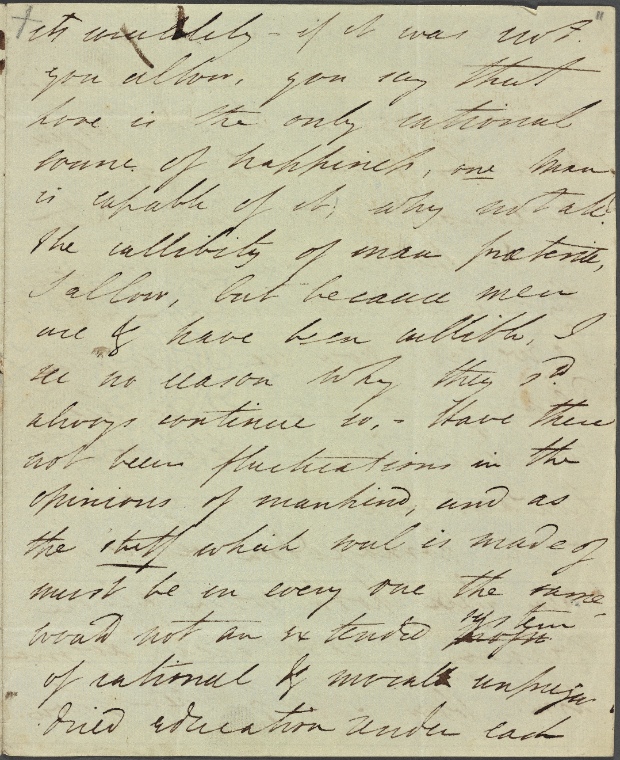 its credibility – if it was not.
you allow, you say that
love is the only rational
source of happiness, one man
is capable of it, why not all?
the cullibility of man preterite,
I allow, but because men
are & have been cullible, I
see no reason why they sd.
always continue so, – Have there
not been fluctuations in the
opinions of mankind, and as
the stuff which soul is made of
must be in every one the same
would not an extended system
of rational & moral unpreju
diced education render each